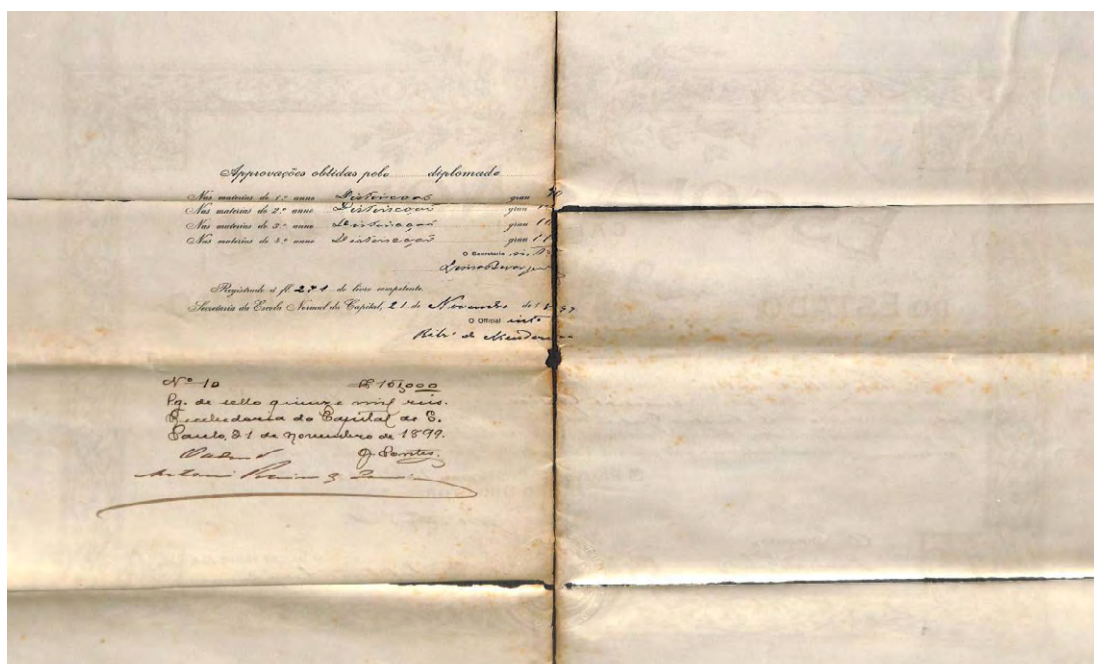 Approvações obtidas pelo diplomado
Nas materias do 1.º anno Distincção grau 10
Nas materias do 2.º anno Distincção grau
Nas materias do 3.º anno Distincção grau
Nas materias do 4.º anno Distincção grau
O Secretario
Registrado á fl. 271 do livro competente.
Secretaria da Escola Normal da Capital, 21 de Novembro de
O Official
Nº 10
Pg. de sello quinze mil reis.
Recebedoria da Capital de S.
Paulo, 21 de Novembro de 1899.